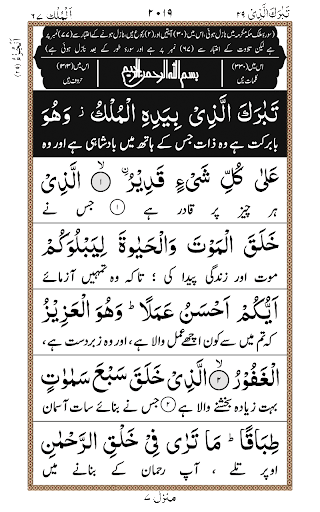 تَبٰرَكَ الَّذِیْ ۲۹
۲۰۱۹
اَلْمُلْك ۶۷
اَلْجُزْءُ (۲۹)
(سورۂ ملک مکہ مکرمہ میں نازل ہوئی، اس میں (۳۰) آیتیں اور (۲) رکوع ہیں، نازل ہونے کے اعتبار سے (۷۷) نمبر پر ہے
لیکن تلاوت کے اعتبار سے (۶۷) نمبر پر ہے اور سورۂ طور کے بعد نازل ہوئی ہے)
اس میں (۳۳۰) کلمات ہیں
بسم الله الرحمن الرحيم
اس میں (۳۱۳) حروف ہیں
تَبٰرَكَ الَّذِیْ بِیَدِهِ الْمُلْكُ ز وَهُوَ
بابرکت ہے وہ ذات جس کے ہاتھ میں بادشاہی ہے اور وہ
عَلٰی كُلِّ شَیْءٍ قَدِیْرُ ۙ ۱ الَّذِیْ
ہر چیز پر قادر ہے ۱ جس نے
خَلَقَ الْمَوْتَ وَالْحَیٰوةَ لِیَبْلُوَكُمْ
موت اور زندگی پیدا کی ؛ تاکہ وہ تمہیں آزمائے
اَیُّكُمْ اَحْسَنُ عَمَلًا ؕ وَهُوَ الْعَزِیْزُ
کہ تم میں سے کون اچھے عمل والا ہے، اور وہ زبردست ہے،
الْغَفُوْرُ ۙ ۲ الَّذِیْ خَلَقَ سَبْعَ سَمٰوٰتٍ
بہت زیادہ بخشنے والا ہے ۲ جس نے بنائے سات آسمان
طِبَاقًا ؕ مَا تَرٰی فِیْ خَلْقِ الرَّحْمٰنِ
اوپر تلے ، آپ رحمان کے بنانے میں
منزل ۷